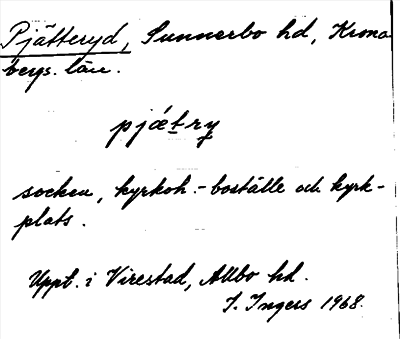 Pjätteryd, Sunnerbo hd, Krono
bergs. län.
pjǽtry
socken, kyrkoh.-boställe och kyrk-
plats.
Uppt. i Virestad, Allbo hd.
I. Ingers 1968.